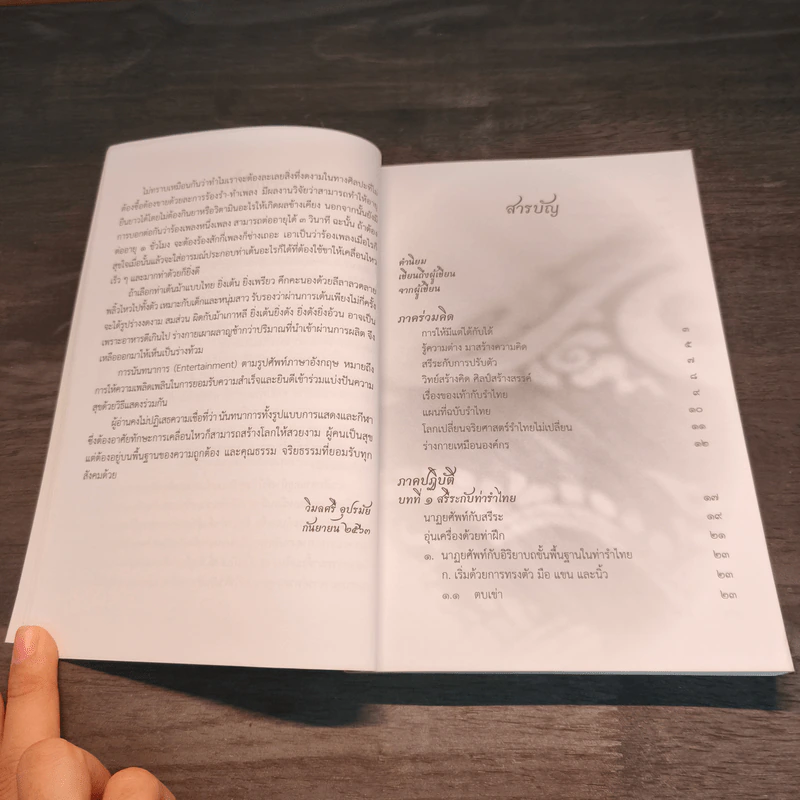 ไม่ทราบเหมือนกันว่าทำไมเราจะต้องละเลยสิ่งที่งดงามในทางศิลปะที่ไม่
ต้องซื้อต้องขายด้วยละการร้องรำ-ทำเพลง มีผลงานวิจัยว่าสามารถทำให้อายุ
ยืนยาวได้โดยไม่ต้องกินยาหรือวิตามินอะไรให้เกิดผลข้างเคียง นอกจากนั้นยังมี
การบอกต่อกันว่าร้องเพลงหนึ่งเพลง สามารถต่ออายุได้ ๓ วินาที ฉะนั้น ถ้าต้อง
ต่ออายุ ๑ ชั่วโมง จะต้องร้องสักกี่เพลงก็ช่างเถอะ เอาเป็นว่าร้องเพลงเมื่อไรก็
สุขใจเมื่อนั้นแล้วจะใส่อารมณ์ประกอบท่าเต้นอะไรก็ได้ที่ต้องใช้ขาให้เคลื่อนไหว
เร็ว ๆ และมากท่าด้วยก็ยิ่งดี
ถ้าเลือกท่าเต้นม้าแบบไทย ยิ่งเต้น ยิ่งเพรียว คึกคะนองด้วยลีลาลวดลาย
พลิ้วไหวไปทั้งตัว เหมาะกับเด็กและหนุ่มสาว รับรองว่าผ่านการเต้นเพียงไม่กี่ครั้ง
จะได้รูปร่างงดงาม สมส่วน ผิดกับม้าเกาหลี ยิ่งเต้นยิ่งดัง ยิ่งดังยิ่งอ้วน อาจเป็น
เพราะอาหารดีเกินไป ร่างกายเผาผลาญช้ากว่าปริมาณที่นำเข้าผ่านการผลิต จึง
เหลือออกมาให้เห็นเป็นร่างท้วม
การนันทนาการ (Entertainment) ตามรูปศัพท์ภาษาอังกฤษ หมายถึง
การให้ความเพลิดเพลินในการยอมรับความสำเร็จและยินดีเข้าร่วมแบ่งปันความ
สุขด้วยวิธีแสดงร่วมกัน
ผู้อ่านคงไม่ปฏิเสธความเชื่อที่ว่า นันทนาการทั้งรูปแบบการแสดงและกีฬา
ซึ่งต้องอาศัยทักษะการเคลื่อนไหวก็สามารถสร้างโลกให้สวยงาม ผู้คนเป็นสุข
แต่ต้องอยู่บนพื้นฐานของความถูกต้อง และคุณธรรม จริยธรรมที่ยอมรับทุก
สังคมด้วย
วิมลศรี อุปรมัย
กันยายน ๒๕๖๓
สารบัญ
คำนิยม
เขียนถึงผู้เขียน
จากผู้เขียน
ภาคร่วมคิด
การให้มีแต่ได้กับได้ ๓
รู้ความต่าง มาสร้างความคิด ๕
สรีระกับการปรับตัว ๗
วิทย์สร้างคิด ศิลป์สร้างสรรค์ ๘
เรื่องของเท้ากับรำไทย ๙
แผนที่ฉบับรำไทย ๑๐
โลกเปลี่ยนจริยศาสตร์รำไทยไม่เปลี่ยน ๑๑
ร่างกายเหมือนองค์กร ๑๒
ภาคปฏิบัติ
บทที่ ๑ สรีระกับท่ารำไทย ๑๗
นาฏยศัพท์กับสรีระ ๑๙
อุ่นเครื่องด้วยท่าฝึก ๒๑
๑. นาฏยศัพท์กับอิริยาบถขั้นพื้นฐานในท่ารำไทย ๒๓
ก. เริ่มด้วยการทรงตัว มือ แขน และนิ้ว ๒๓
๑.๑ ตบเข่า ๒๓